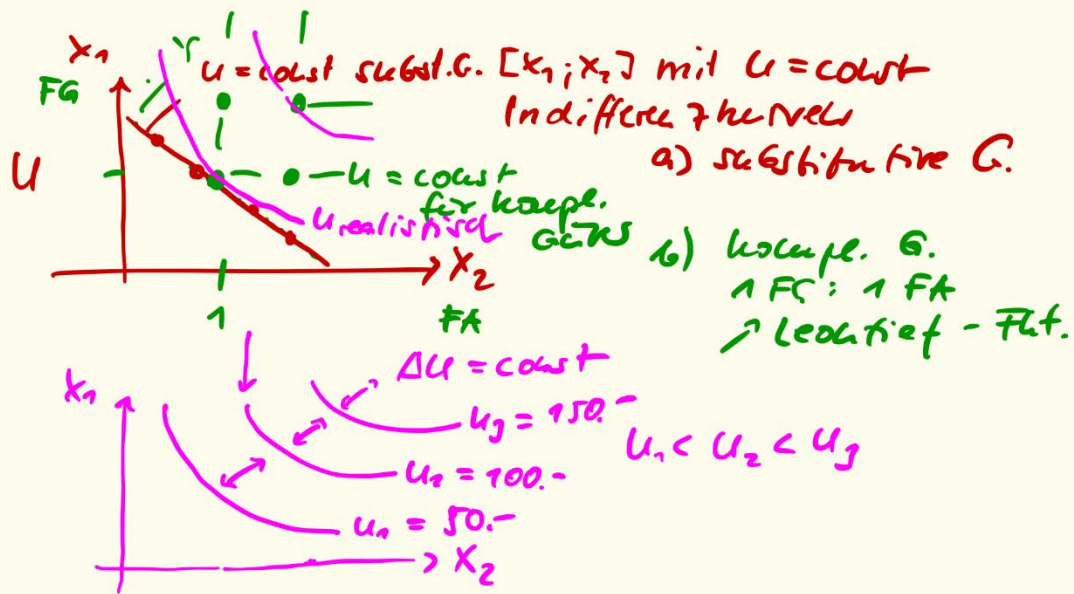 X₁
FG
U = const subst. G. [X₁; X₂] mit U = const
Indifferenzkurven
a) substitutive G.
U
U = const
für kompl.
Güter
U realistisch
X₂
1
FA
b) kompl. G.
1 FG : 1 FA
↗ Leontief - Fkt.
X₁
ΔU = const
U₃ = 150.-
U₁ < U₂ < U₃
U₂ = 100.-
U₁ = 50.-
X₂